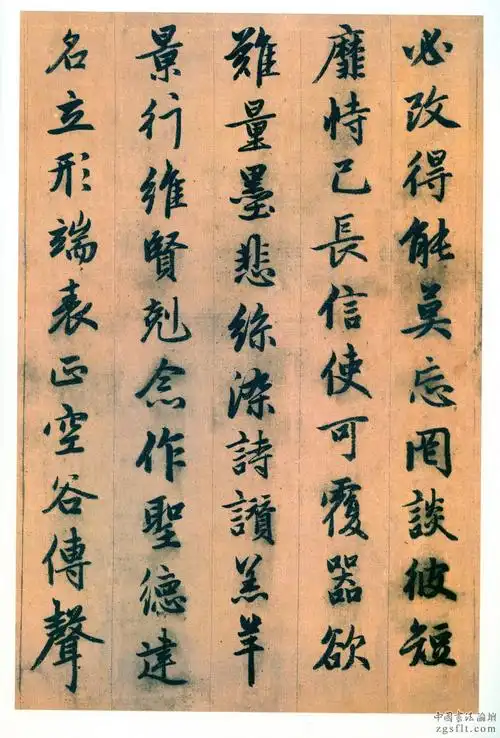 必改得能莫忘罔談彼短
靡恃己長信使可覆器欲
難量墨悲絲染詩讚羔羊
景行維賢剋念作聖德建
名立形端表正空谷傳聲
中國書法論壇
zgsflt.com